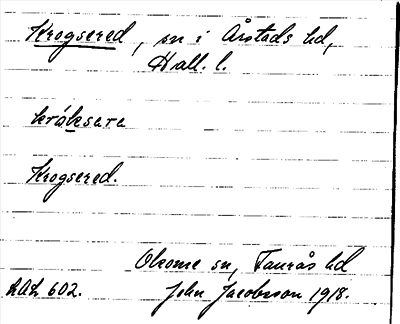 Krogsered, sn i Årstads hd,
Hall. l.
kråksara
Krogsered.
Okome sn, Faurås hd
LAL 602. John Jacobsson 1918.